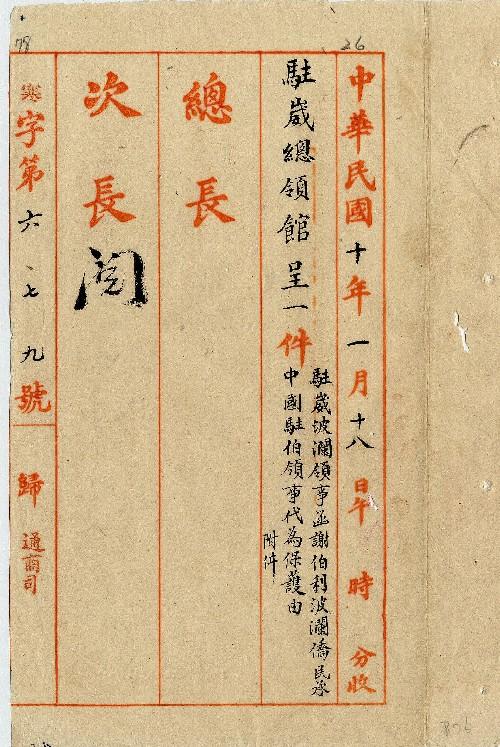 26
78
中華民國十年一月十八日午 時 分收
駐崴總領館呈一件
駐崴波瀾領事函謝伯利波瀾僑民承
中國駐伯領事代為保護由
附件
總長
次長閱
寒字第六、七九號 歸通商司